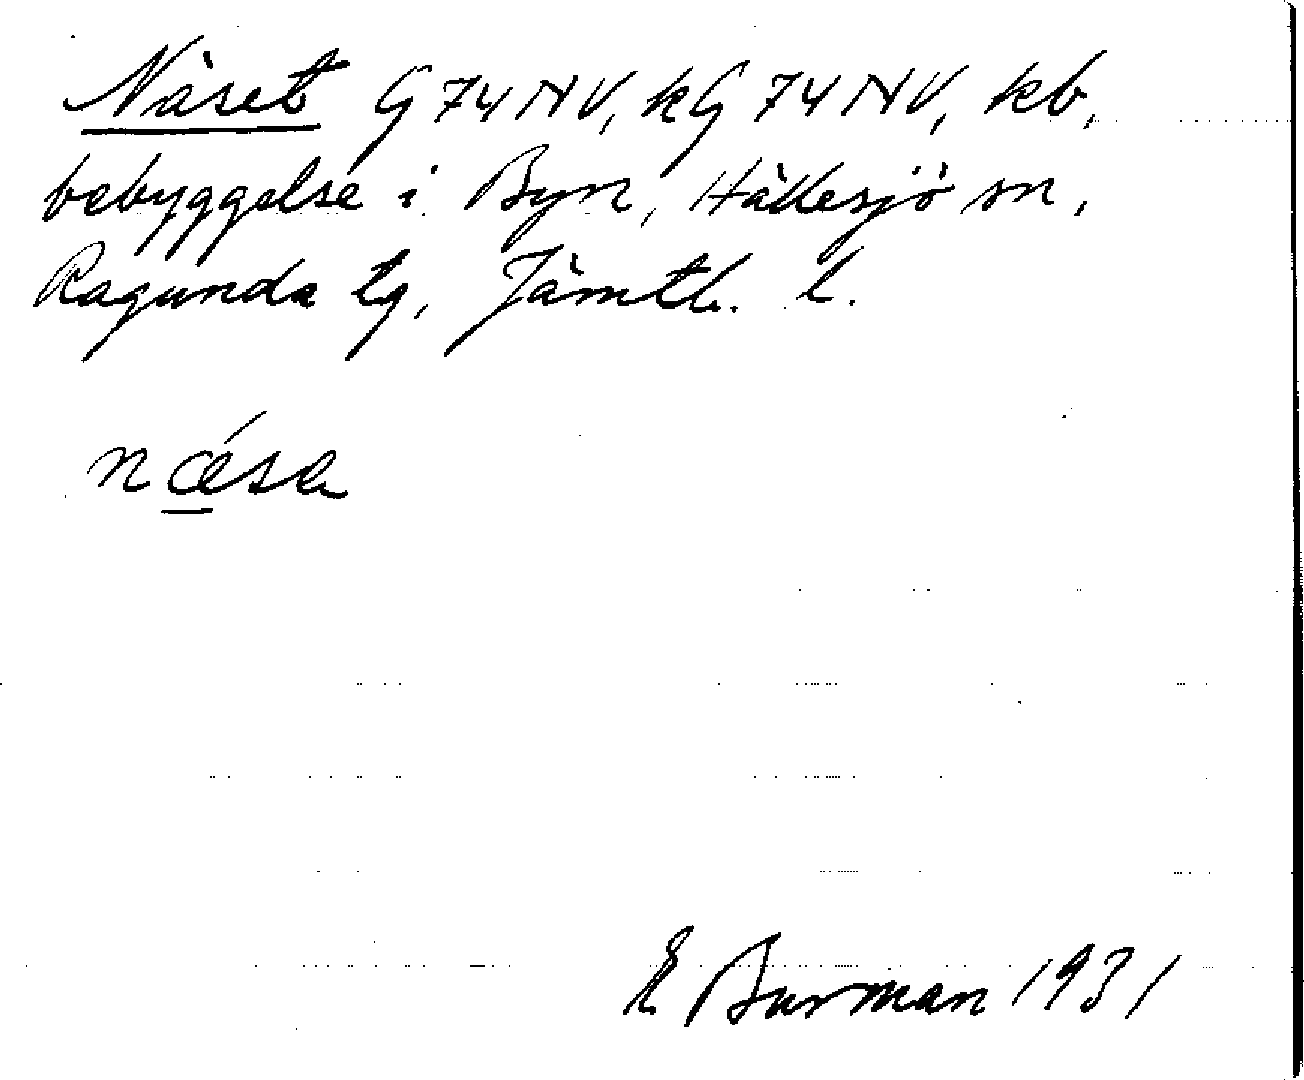 Näset G 74 NV, kG 74 NV, kb,
bebyggelse i Byn, Hällesjö sn,
Ragunda tg, Jämtl. l.
nǽsa
E Burman 1931